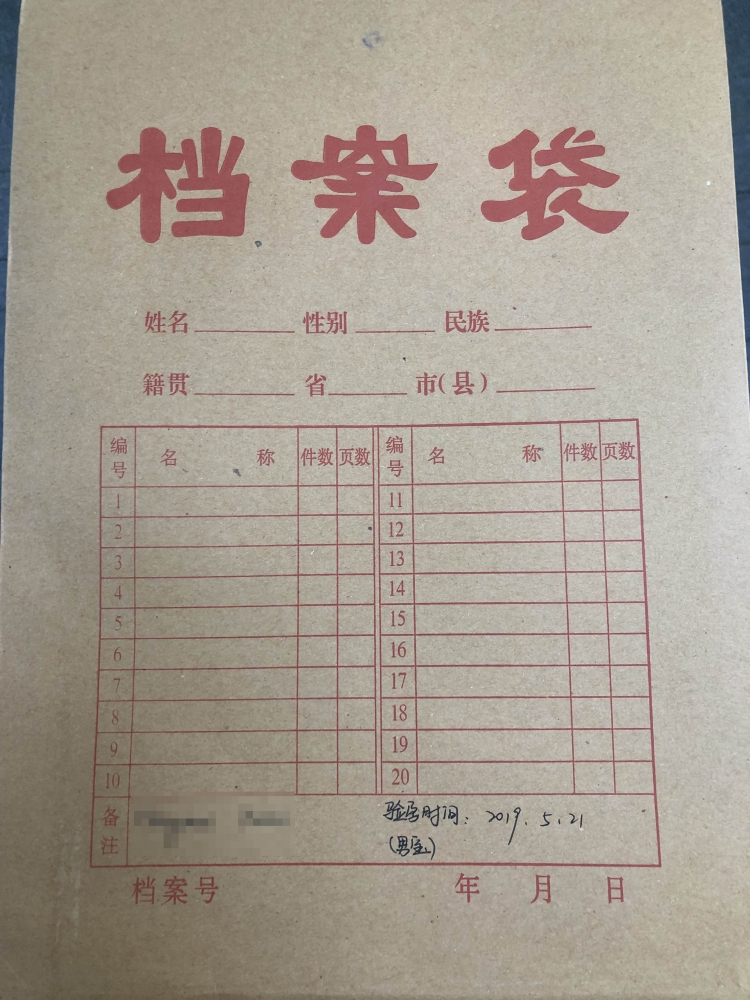 档案袋
姓名 性别 民族
籍贯 省 市(县)
编号 名称 件数 页数 编号 名称 件数 页数
1 11
2 12
3 13
4 14
5 15
6 16
7 17
8 18
9 19
10 20
备注 验孕时间：2019.5.21
(男宝)
档案号 年 月 日